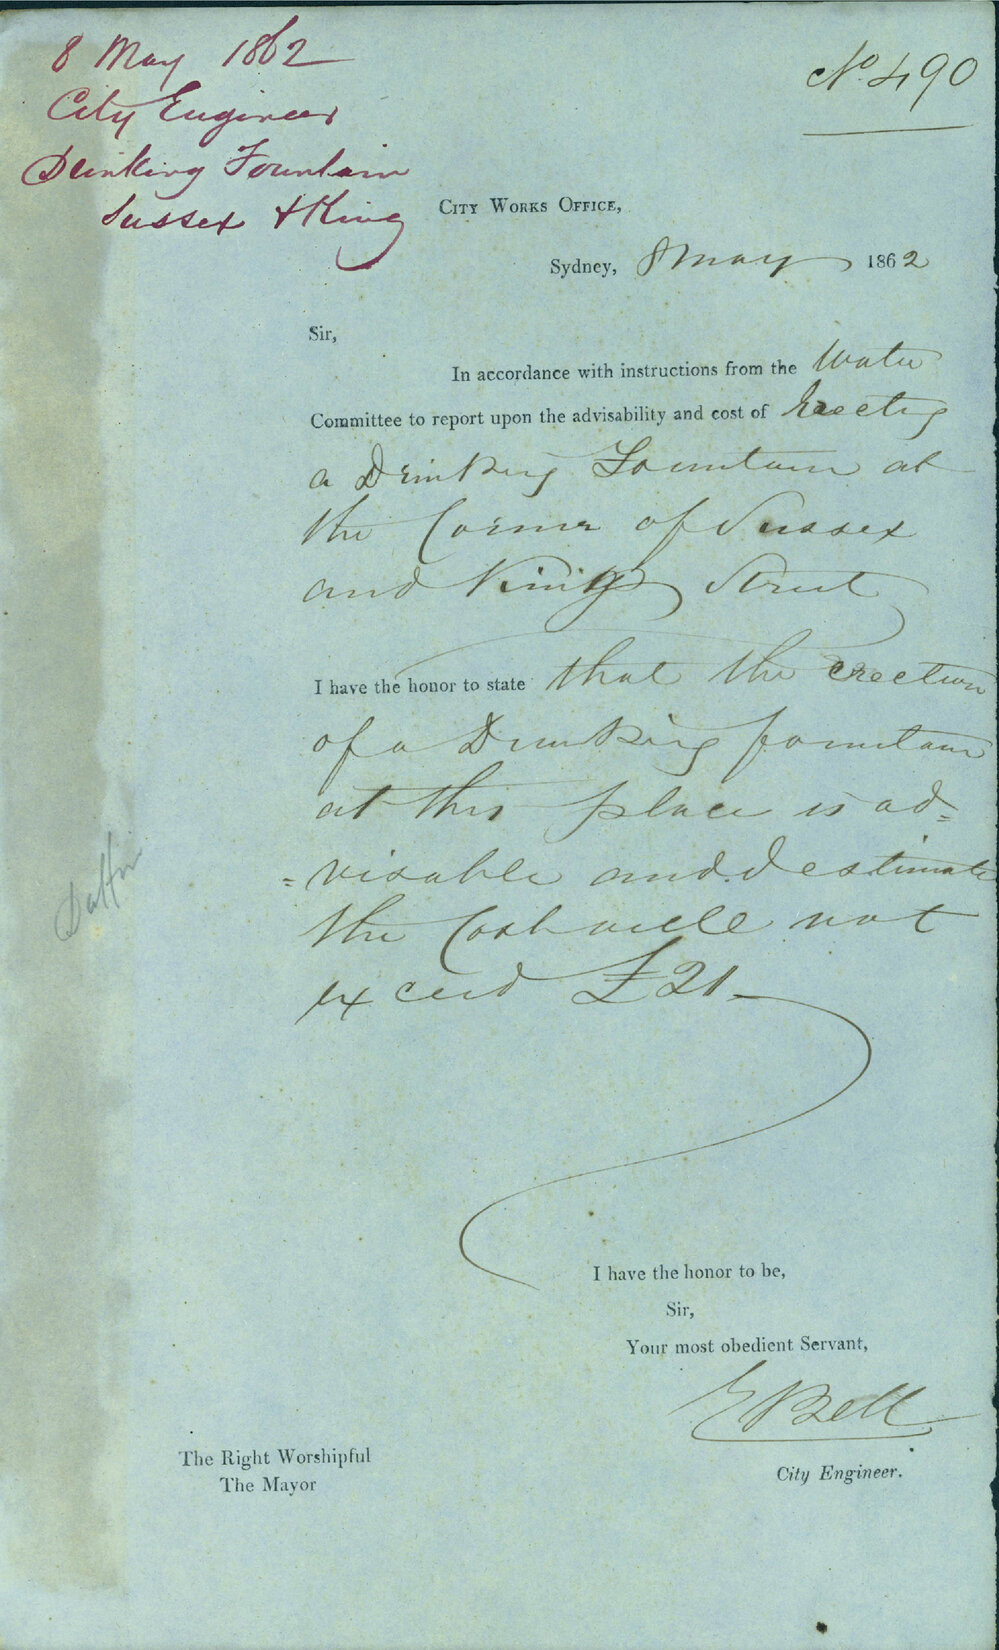 8 May 1862
City Engineer
Drinking Fountain
Sussex & King
No 490
City Works Office,
Sydney, 8 May 1862
Sir,
In accordance with instructions from the Water
Committee to report upon the advisability and cost of Erecting
a Drinking Fountain at
the Corner of Sussex
and King Street
I have the honor to state that the erection
of a Drinking fountain
at this place is ad=
=visable and I estimate
the Cost will not
exceed £21
I have the honor to be,
Sir,
Your most obedient Servant,
E Bell
City Engineer.
The Right Worshipful
The Mayor